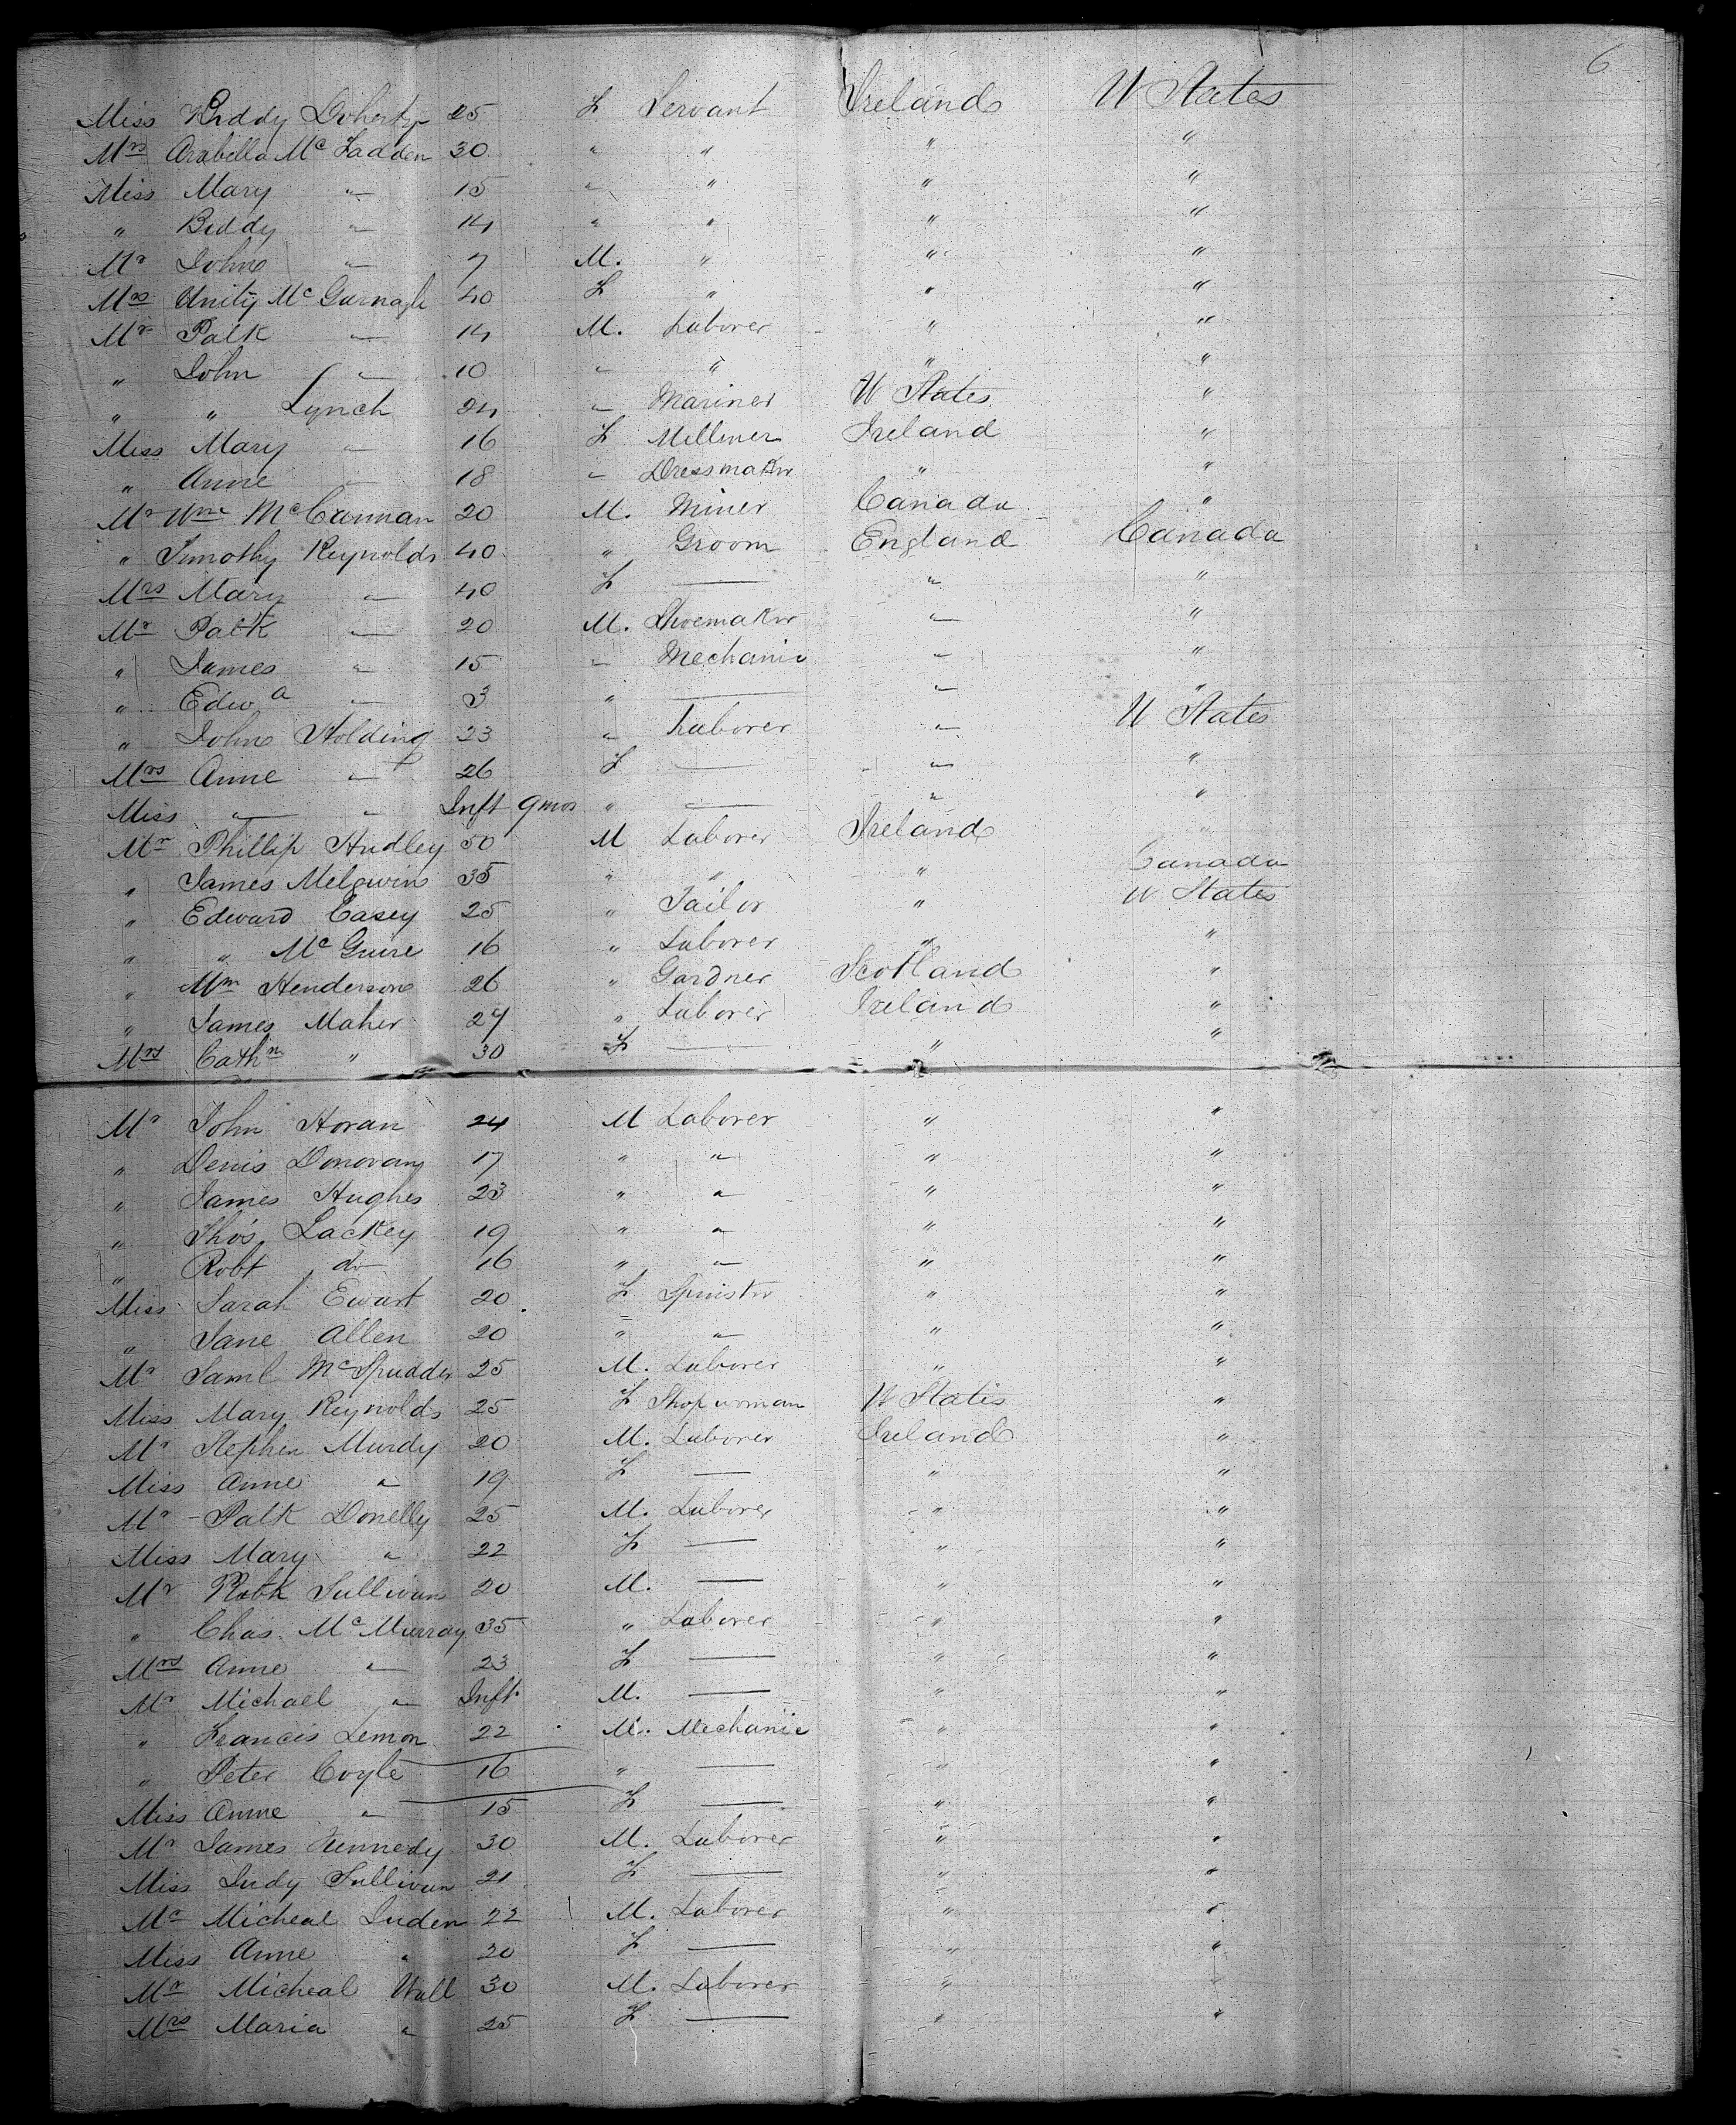 6
Miss Biddy Doherty 25 F Servant Ireland U States
Mrs Arabella McFadden 30 " " " "
Miss Mary " 15 " " " "
" Biddy " 14 " " " "
Mr John " 7 M. " " "
Mrs Unity McGarnagle 40 F " " "
Mr Patk " 14 M. Laborer " "
" John " 10 " " " "
" " Lynch 24 " Mariner U States "
Miss Mary " 16 F Milliner Ireland "
" Anne " 18 " Dressmaker " "
Mr Wm McCannan 20 M. Miner Canada "
" Timothy Reynolds 40 " Groom England Canada
Mrs Mary " 40 F — " "
Mr Patk " 20 M. Shoemaker " "
" James " 15 " Mechanic " "
" Edwd " 3 " — " "
" John Holding 23 " Laborer " U States
Mrs Anne " 26 F — " "
Miss " " Inft 9 mos " — " "
Mr Phillip Hudley 50 M Laborer Ireland "
" James 35 " " " Canada
" Edward Casey 25 " Tailor " U States
" " McGuire 16 " Laborer " "
" Wm Henderson 26 " Gardner Scotland "
" James Maher 27 " Laborer Ireland "
Mrs Cathn " 30 F — " "
Mr John Horan 24 M Laborer " "
" Denis Donovan 17 " " " "
" James Hughes 23 " " " "
" Thos Lackey 19 " " " "
" Robt do 16 " " " "
Miss Sarah Ewart 20 F Spinster " "
" Jane Allen 20 " " " "
Mr Saml McSpudder 25 M. Laborer " "
Miss Mary Reynolds 25 F Shopwoman U States "
Mr Stephen Murdy 20 M. Laborer Ireland "
Miss Anne " 19 F — " "
Mr Patk Donelly 25 M. Laborer " "
Miss Mary " 22 F — " "
Mr Sullivan 20 M. — " "
" Chas. McMurray 35 " Laborer " "
Mrs Anne " 23 F — " "
Mr Michael " Inft M. — " "
" Francis Lemon 22 M. Mechanic " "
" Peter Coyle 16 " — " "
Miss Anne " 15 F — " "
Mr James Kennedy 30 M. Laborer " "
Miss Judy Sullivan 21 F — " "
Mr Micheal 22 M. Laborer " "
Miss Anne " 20 F — " "
Mr Micheal Wall 30 M. Laborer " "
Mrs Maria " 25 F — " "